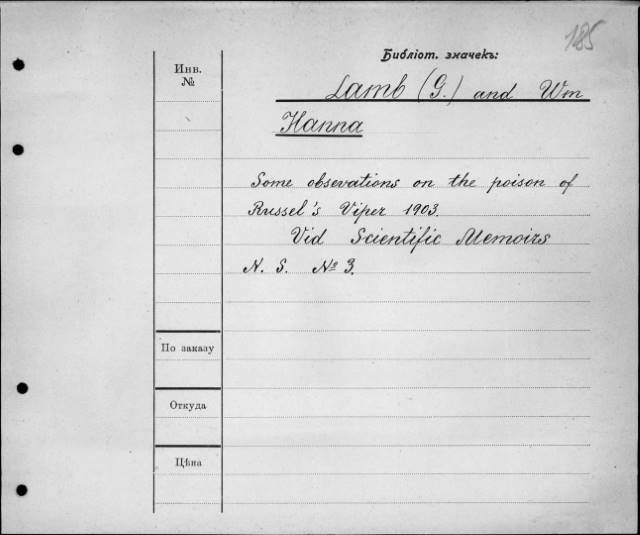 185
Библіот. значекъ:
Инв.
№
Lamb (G.) and Wm
Hanna
Some obsevations on the poison of
Russel's Viper 1903.
Vid Scientific Memoirs
N. S. № 3.
По заказу
Откуда
Цѣна